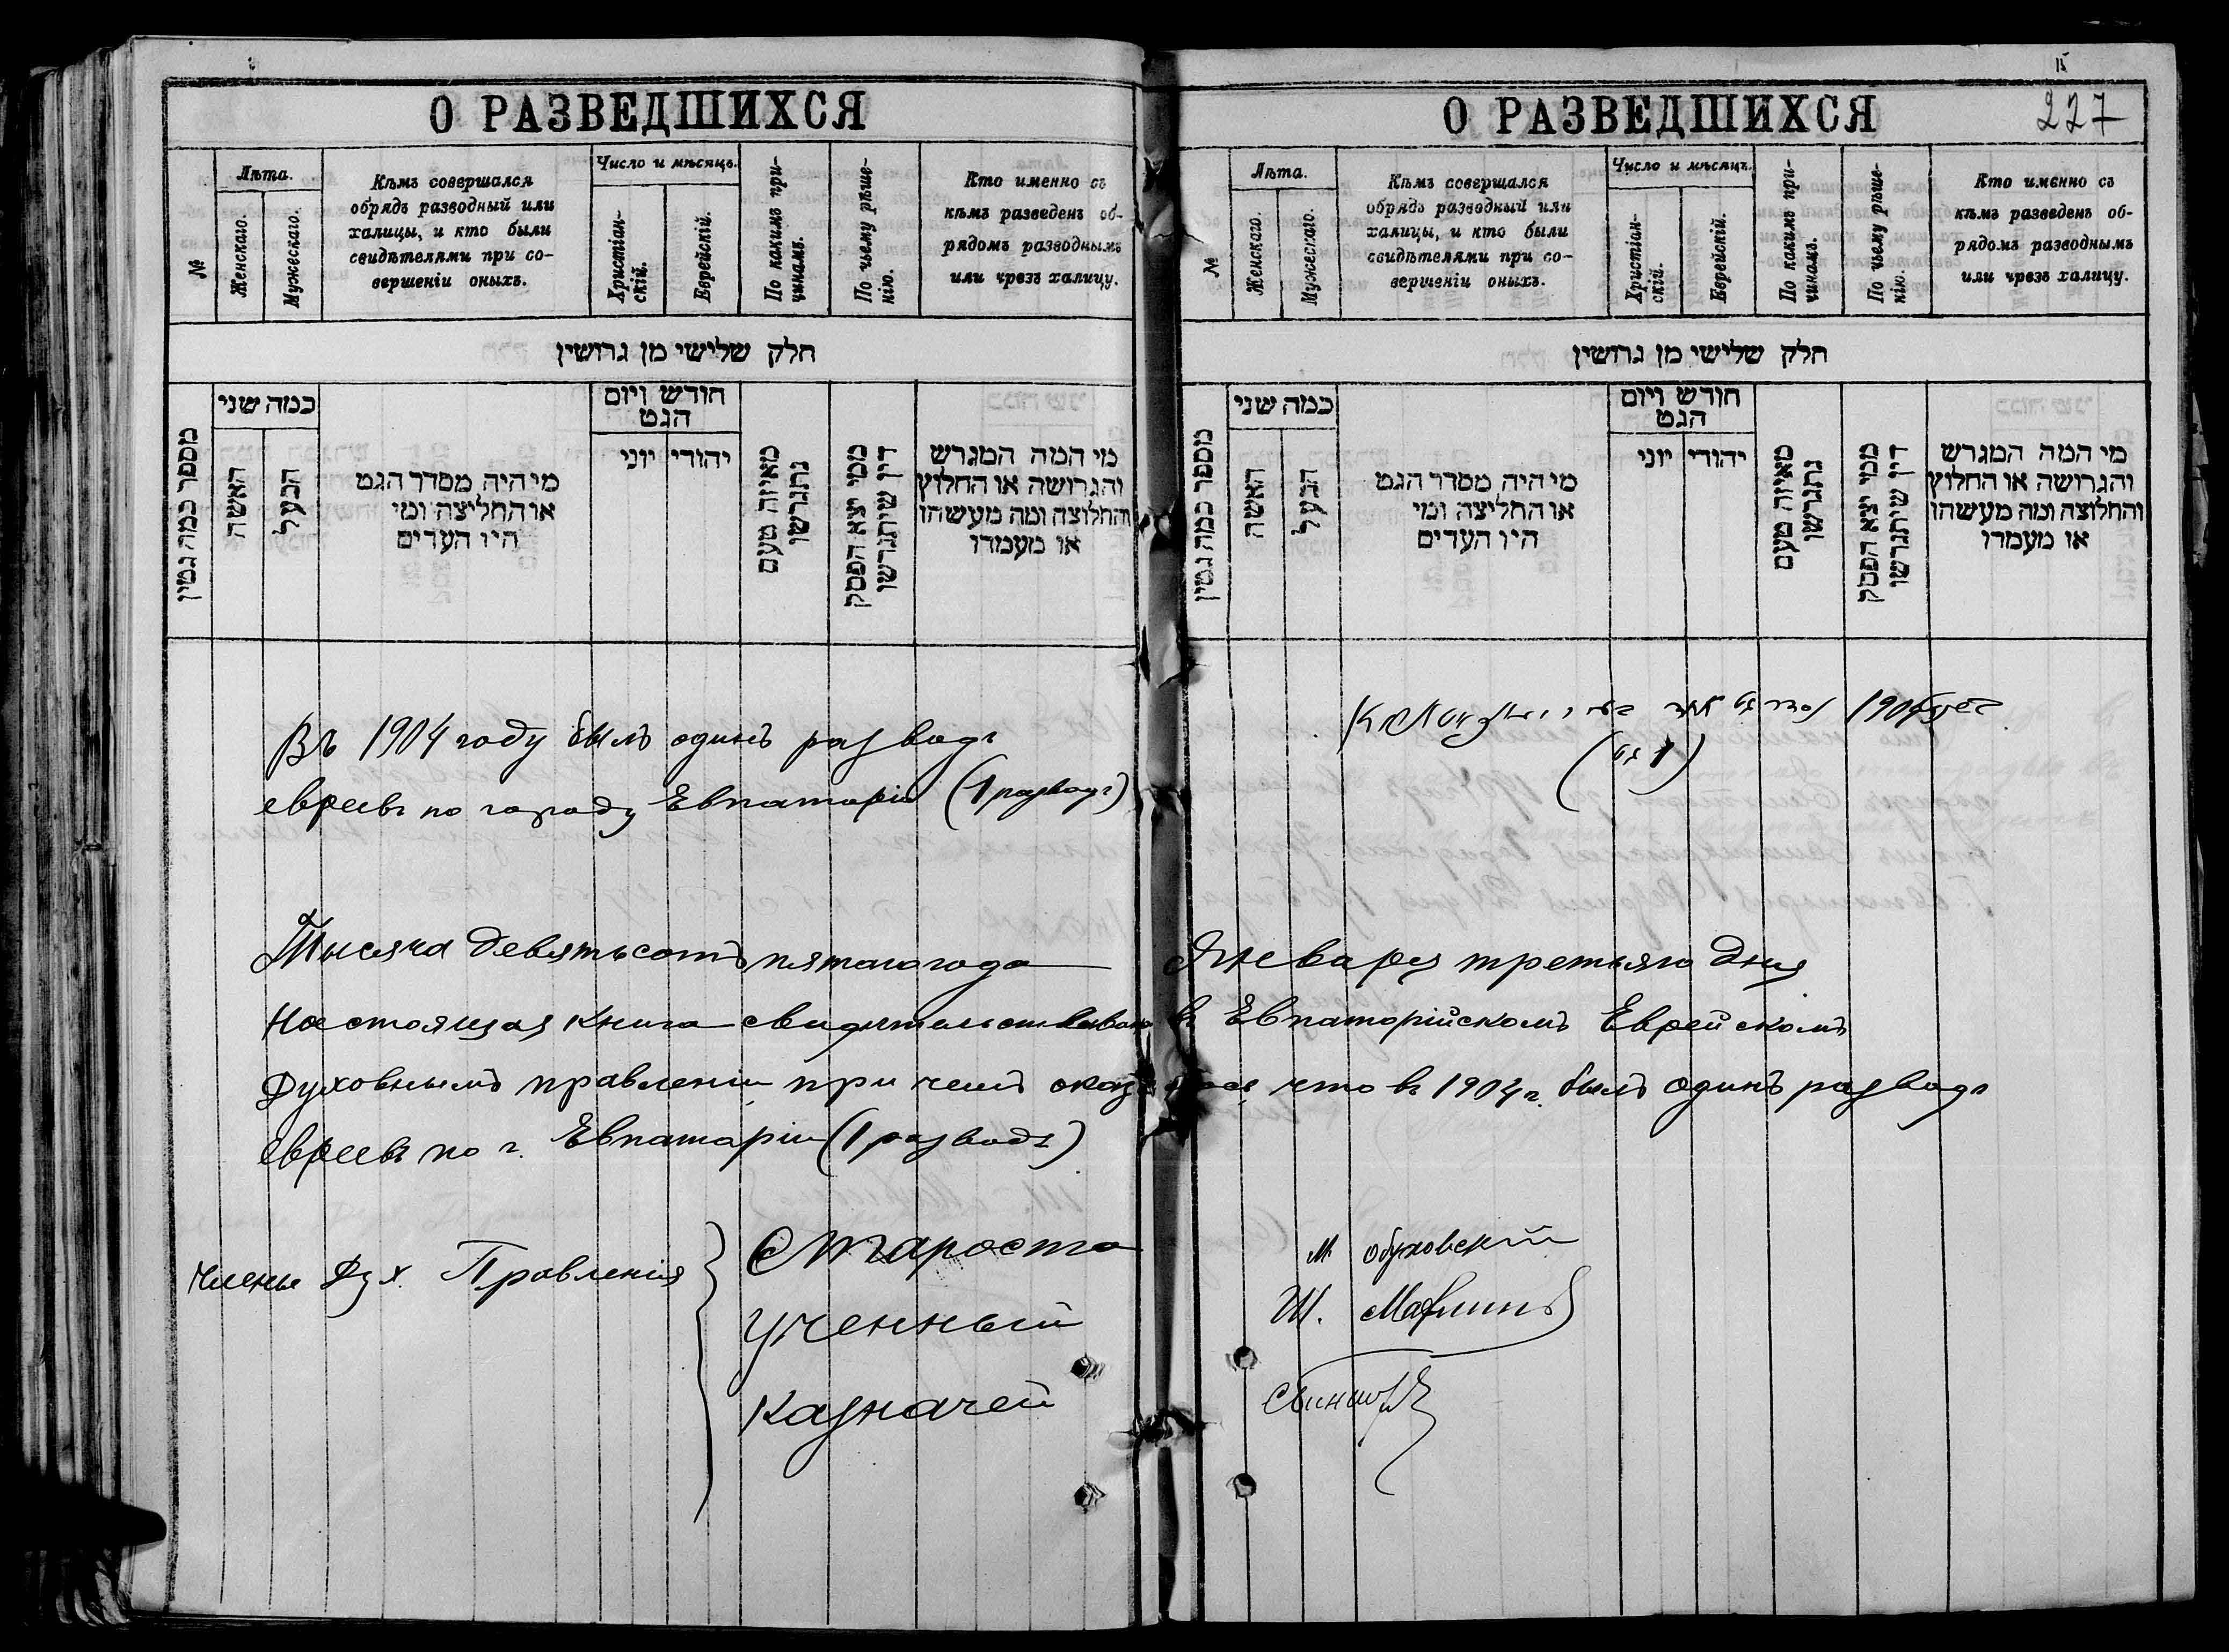 О РАЗВЕДШИХСЯ
№
Лѣта.
Женскаго.
Мужескаго.
Кѣмъ совершался
обрядъ разводный или
халицы, и кто были
свидѣтелями при со-
вершеніи оныхъ.
Число и мѣсяцъ.
Христіан-
скій.
Еврейскій.
По какимъ при-
чинамъ.
По чьему рѣше-
нію.
Кто именно съ
кѣмъ разведенъ об-
рядомъ разводнымъ
или чрезъ халицу.
חלק שלישי מן גרושין
מספר כמה גטין
כמה שני
האשה
הבעל
מי היה מסדר הגט
או החליצה ומי
היו העדים
חודש ויום
הגט
יהודי
יוני
מאיזה טעם
נתגרשו
ממי יצא הפסק
דין שיתגרשו
מי המה המגרש
והגרושה או החלוץ
והחלוצה ומה מעשהו
או מעמדו
Въ 1904 году былъ одинъ разводъ
евреевъ по городу Евпаторіи (1 разводъ)
О РАЗВЕДШИХСЯ
227
№
Лѣта.
Женскаго.
Мужескаго.
Кѣмъ совершался
обрядъ разводный или
халицы, и кто были
свидѣтелями при со-
вершеніи оныхъ.
Число и мѣсяцъ.
Христіан-
скій.
Еврейскій.
По какимъ при-
чинамъ.
По чьему рѣше-
нію.
Кто именно съ
кѣмъ разведенъ об-
рядомъ разводнымъ
или чрезъ халицу.
חלק שלישי מן גרושין
מספר כמה גטין
כמה שני
האשה
הבעל
מי היה מסדר הגט
או החליצה ומי
היו העדים
חודש ויום
הגט
יהודי
יוני
מאיזה טעם
נתגרשו
ממי יצא הפסק
דין שיתגרשו
מי המה המגרש
והגרושה או החלוץ
והחלוצה ומה מעשהו
או מעמדו
1904
Тысяча девятьсотъ пятаго года Января третьяго дня
Настоящая книга свидѣтельствована въ Евпаторійскомъ Еврейскомъ
Духовнымъ правленіи при чемъ оказалось что въ 1904 г. былъ одинъ разводъ
Евреевъ по г. Евпаторіи (1 разводъ)
Члены Дух. Правленія
Староста М Обуховскій
Ученный Ш.
Казначей